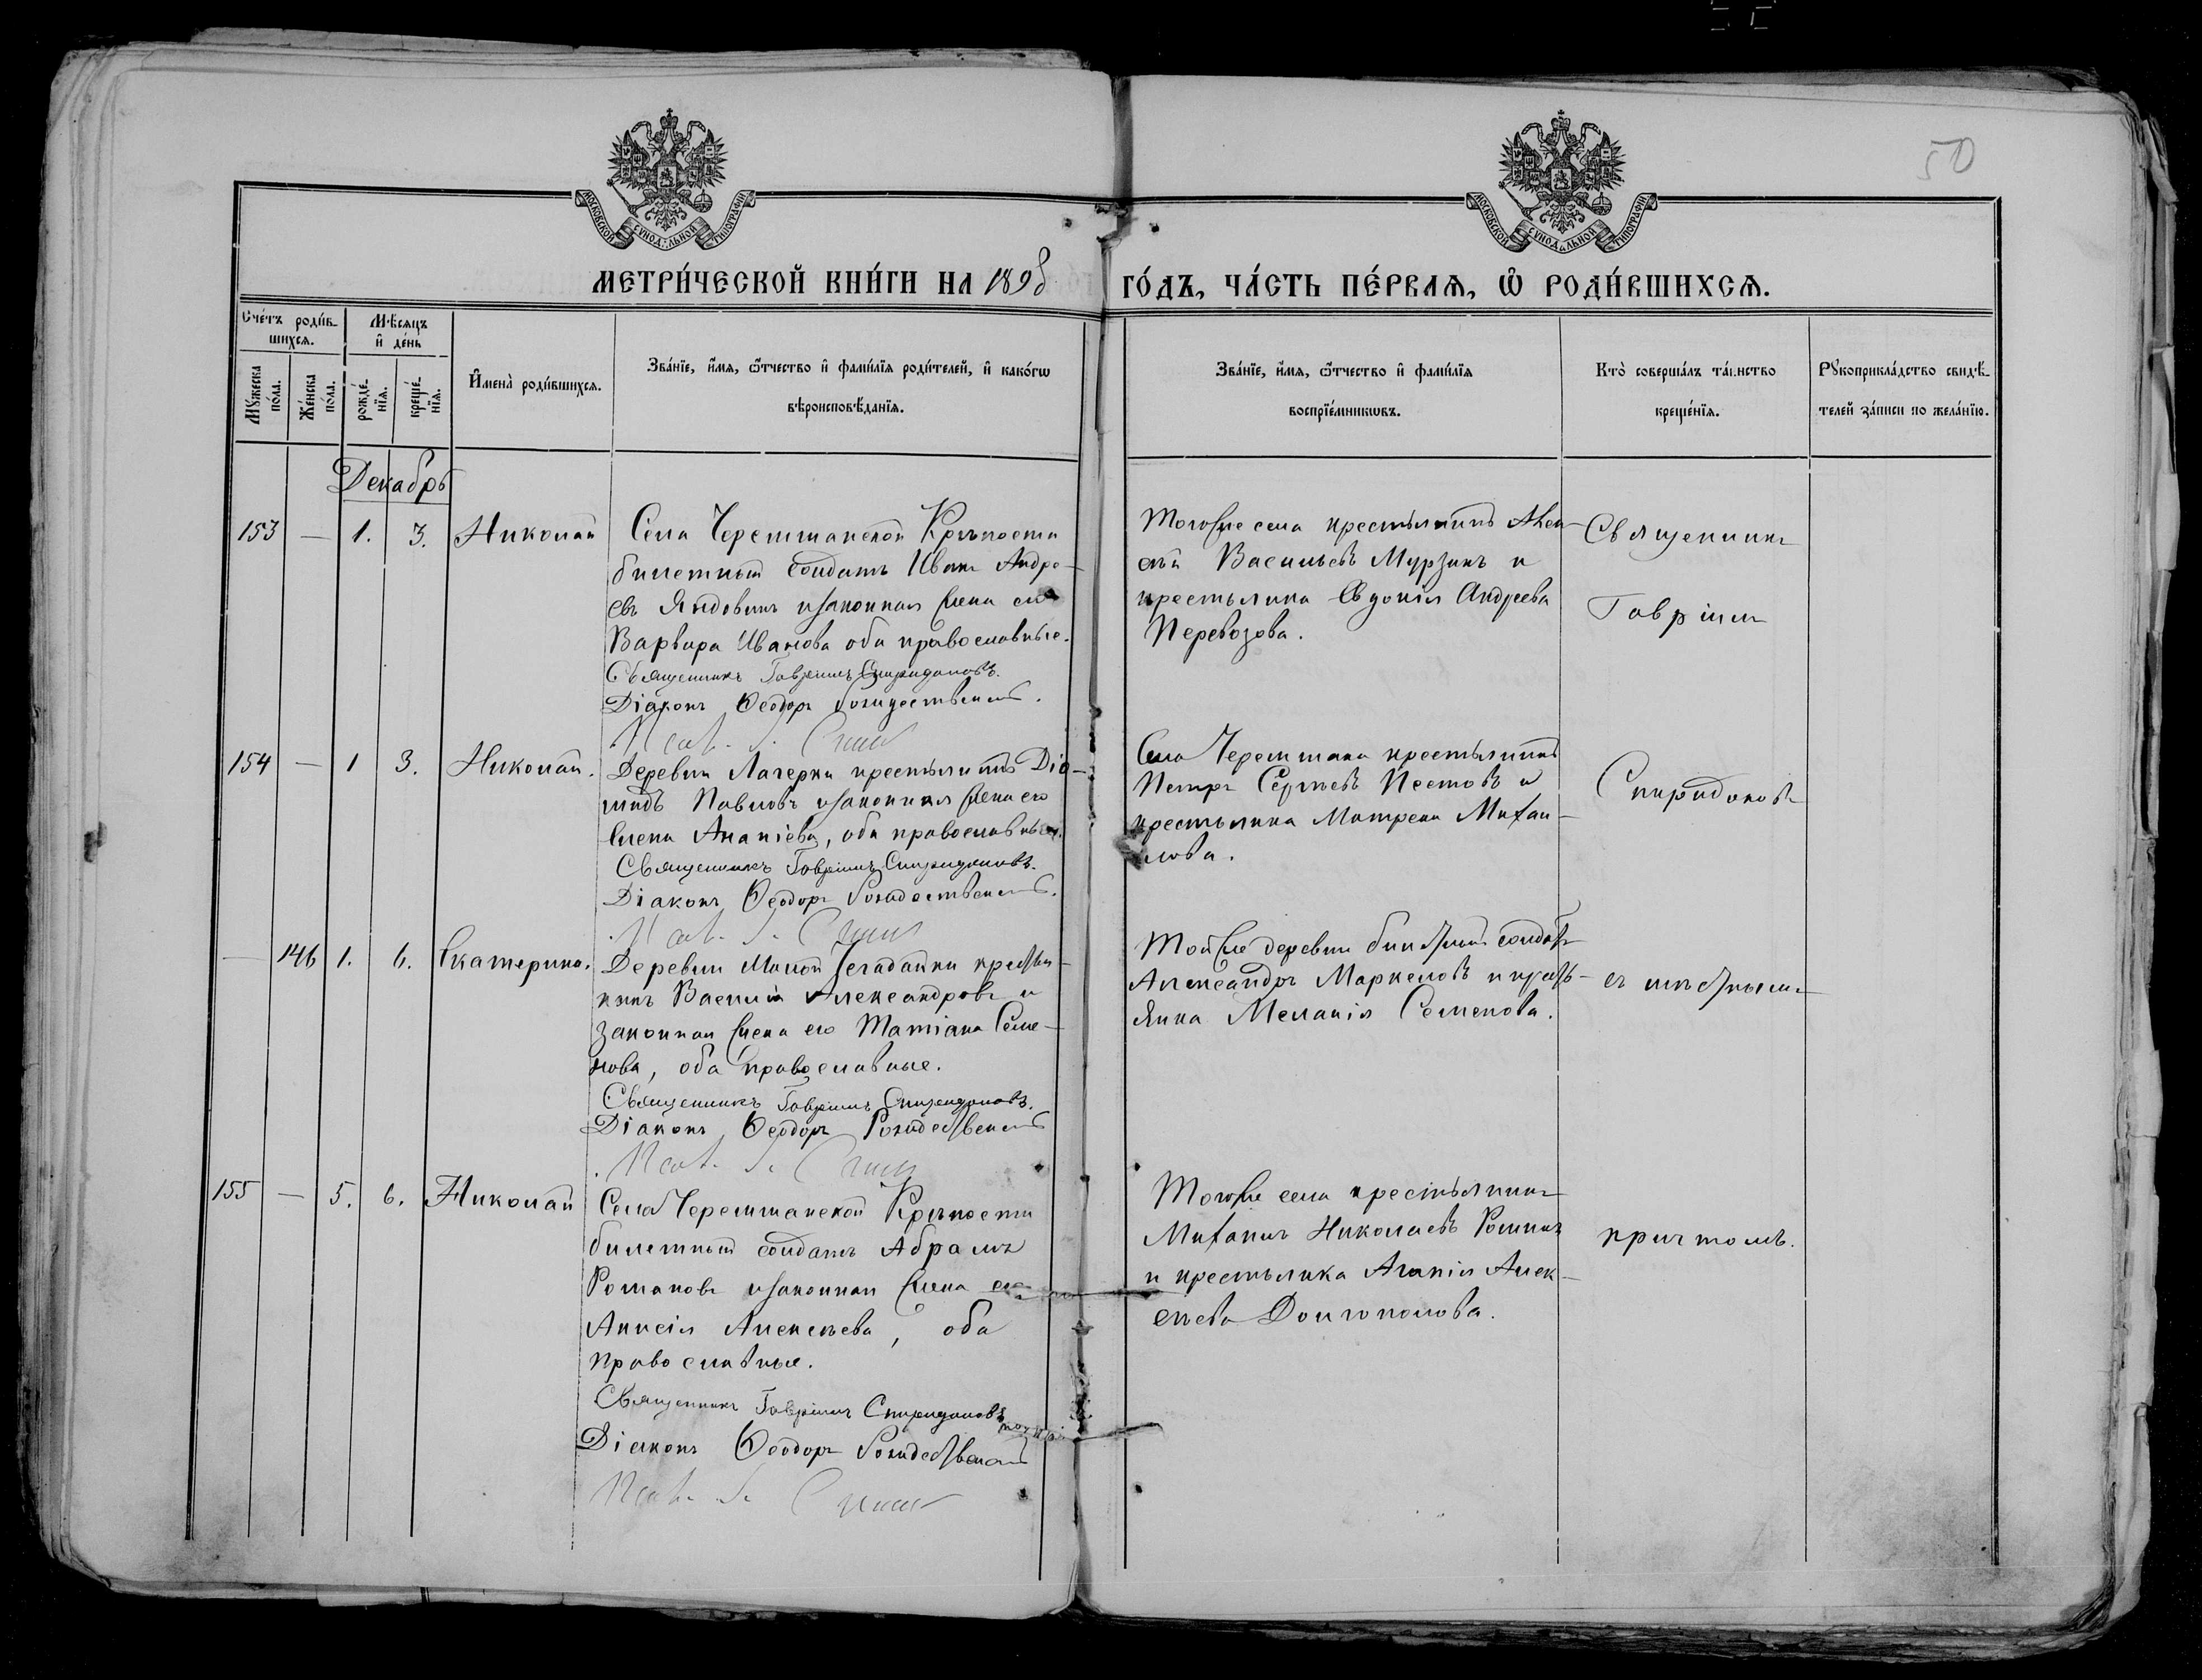 50
МОСКОВСКОЙ СУНОДАЛЬНОЙ ТИПОГРАФІИ
МОСКОВСКОЙ СУНОДАЛЬНОЙ ТИПОГРАФІИ
МЕТРИ́ЧЕСКОЙ КНИ́ГИ НА 189
ГО́ДЪ, ЧА́СТЬ ПЕ́РВАѦ, Ѽ РОДИ́ВШИХСѦ.
Счéтъ роди́в-
шихсѧ.
Мꙋ́жеска
по́ла.
Же́нска
по́ла.
Мѣ́сѧцъ
и҆ де́нь
рожде́-
нїѧ.
креще́-
нїѧ.
И҆мена̀ роди́вшихсѧ.
Зва́нїе, и҆́мѧ, ѻ҆́тчество и҆ фами́лїѧ роди́телей, и҆ како́гѡ
вѣроисповѣ́данїѧ.
Зва́нїе, и҆́мѧ, ѻ҆́тчество и҆ фами́лїѧ
воспрїе́мникѡвъ.
Кто̀ соверша́лъ та́инство
креще́нїѧ.
Рꙋкоприкла́дство свидѣ́-
телей за́писи по жела́нїю.
Декабрь
153 — 1. 3. Николай
Села Черемшанской Крѣпости
билетный солдатъ Иванъ Андре-
евъ Яндовинъ и законная жена его
Варвара Иванова оба православные.
Священникъ Гавріилъ Спиридоновъ.
Діаконъ Ѳеодоръ Рождественскій.
Тогоже села крестьянинъ Алек-
сѣй Васильевъ Мурзинъ и
крестьянка Евдокія Андреева
Перевозова.
Священникъ
Гавріилъ
154 — 1 3. Николай.
Деревни Лагерки крестьянинъ Діо-
мидъ Павловъ и законная жена его
Елена Ананіева, оба православные.
Священникъ Гавріилъ Спиридоновъ.
Діаконъ Ѳеодоръ Рождественскій.
Села Черемшана крестьянинъ
Петръ Сергѣевъ Пестовъ и
крестьянка Матрена Михаи-
лова.
Спиридоновъ
— 146 1. 6. Екатерина.
Деревни Малой крестья-
нинъ Василій Александровъ и
законная жена его Татіана Семе-
нова, оба православные.
Священникъ Гавріилъ Спиридоновъ.
Діаконъ Ѳеодоръ Рождественскій
Той же деревни билетный солдатъ
Александръ Маркеловъ и кресть-
янка Меланія Семенова.
съ мѣстнымъ
155 — 5. 6. Николай
Села Черемшанской Крѣпости
билетный солдатъ Абрамъ
Романовъ и законная жена его
Анисія Алексѣева, оба
православные.
Священникъ Гавріилъ Спиридоновъ
Діаконъ Ѳеодоръ Рождественскій
Тогоже села крестьянинъ
Михаилъ Николаевъ Роминъ
и крестьянка Агапія Алек-
сѣева Долгополова.
причтомъ.